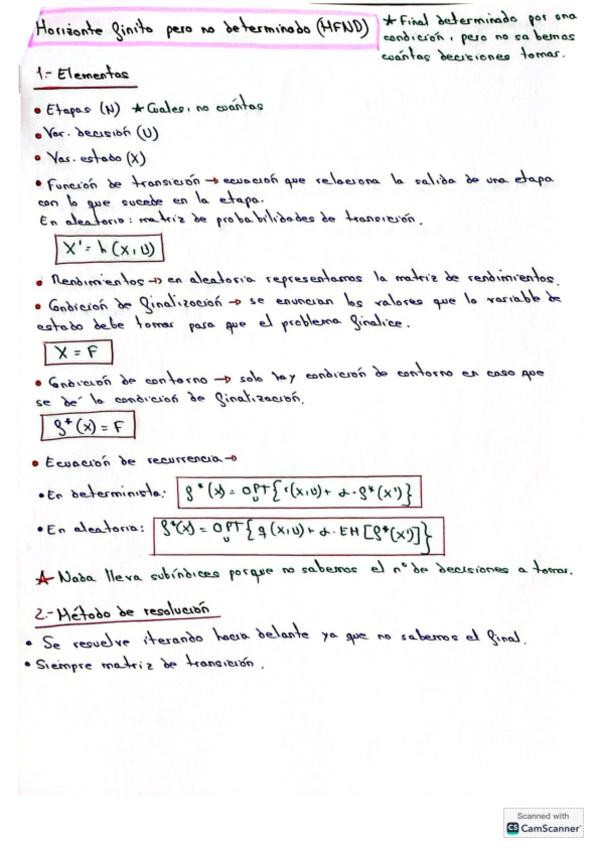 Horizonte finito pero no determinado (HFND)
★ Final determinado por una
condición, pero no sabemos
cuántas decisiones tomar.
1.- Elementos
• Etapas (N) ★ Cuales, no cuántas
• Var. decisión (U)
• Var. estado (X)
• Función de transición → ecuación que relaciona la salida de una etapa
con lo que sucede en la etapa.
En aleatorio: matriz de probabilidades de transición.
X' = h (X, U)
• Rendimientos → en aleatoria representamos la matriz de rendimientos.
• Condición de finalización → se enuncian los valores que la variable de
estado debe tomar para que el problema finalice.
X = F
• Condición de contorno → solo hay condición de contorno en caso que
se dé la condición de finalización.
f*(x) = F
• Ecuación de recurrencia →
• En determinista: f*(x) = OPT{r(x,u) + α · f*(x')}
U
• En aleatoria: f*(x) = OPT{q(x,u) + α · EM[f*(x')]}
U
★ Nada lleva subíndices porque no sabemos el nº de decisiones a tomar.
2.- Método de resolución
• Se resuelve iterando hacia delante ya que no sabemos el final.
• Siempre matriz de transición.
Scanned with
CS CamScanner